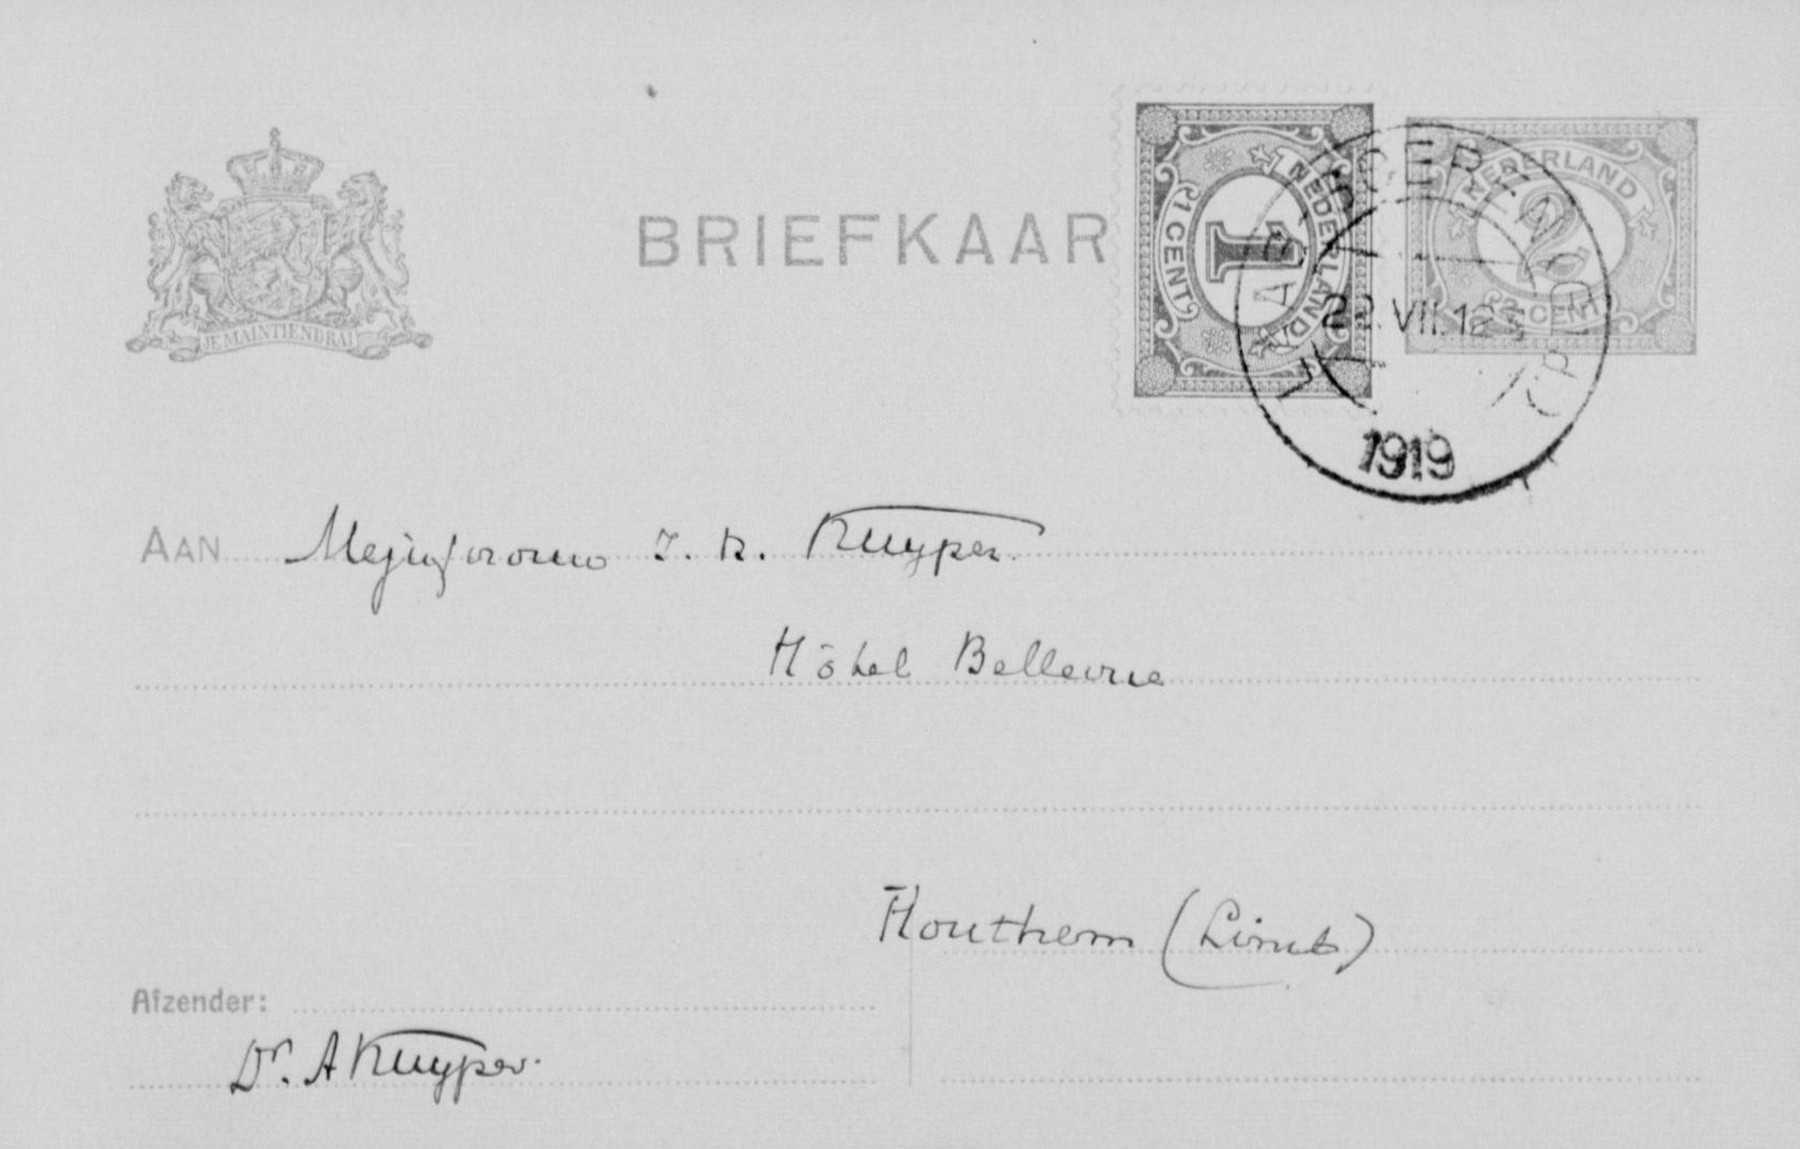 BRIEFKAAR
JE MAINTIENDRAI
NEDERLAND
1
1 CENT
NEDERLAND
2½ CENT
VII.12
1919
AAN Mejufvrouw J. K. Kuyper.
Hôtel Bellevue
Houthem (Limb)
Afzender:
Dr. A Kuyper.